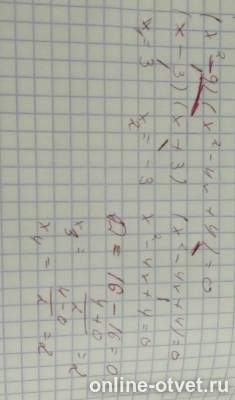 (x²-9)(x²-4x+4)=0
(x-3)(x+3) (x²-4x+4)=0
x₁=3 x₂=-3 x²-4x+4=0
D=16-16=0
x₃= (4+0)/2 =2
x₄= (4-0)/2 =2
online-otvet.ru